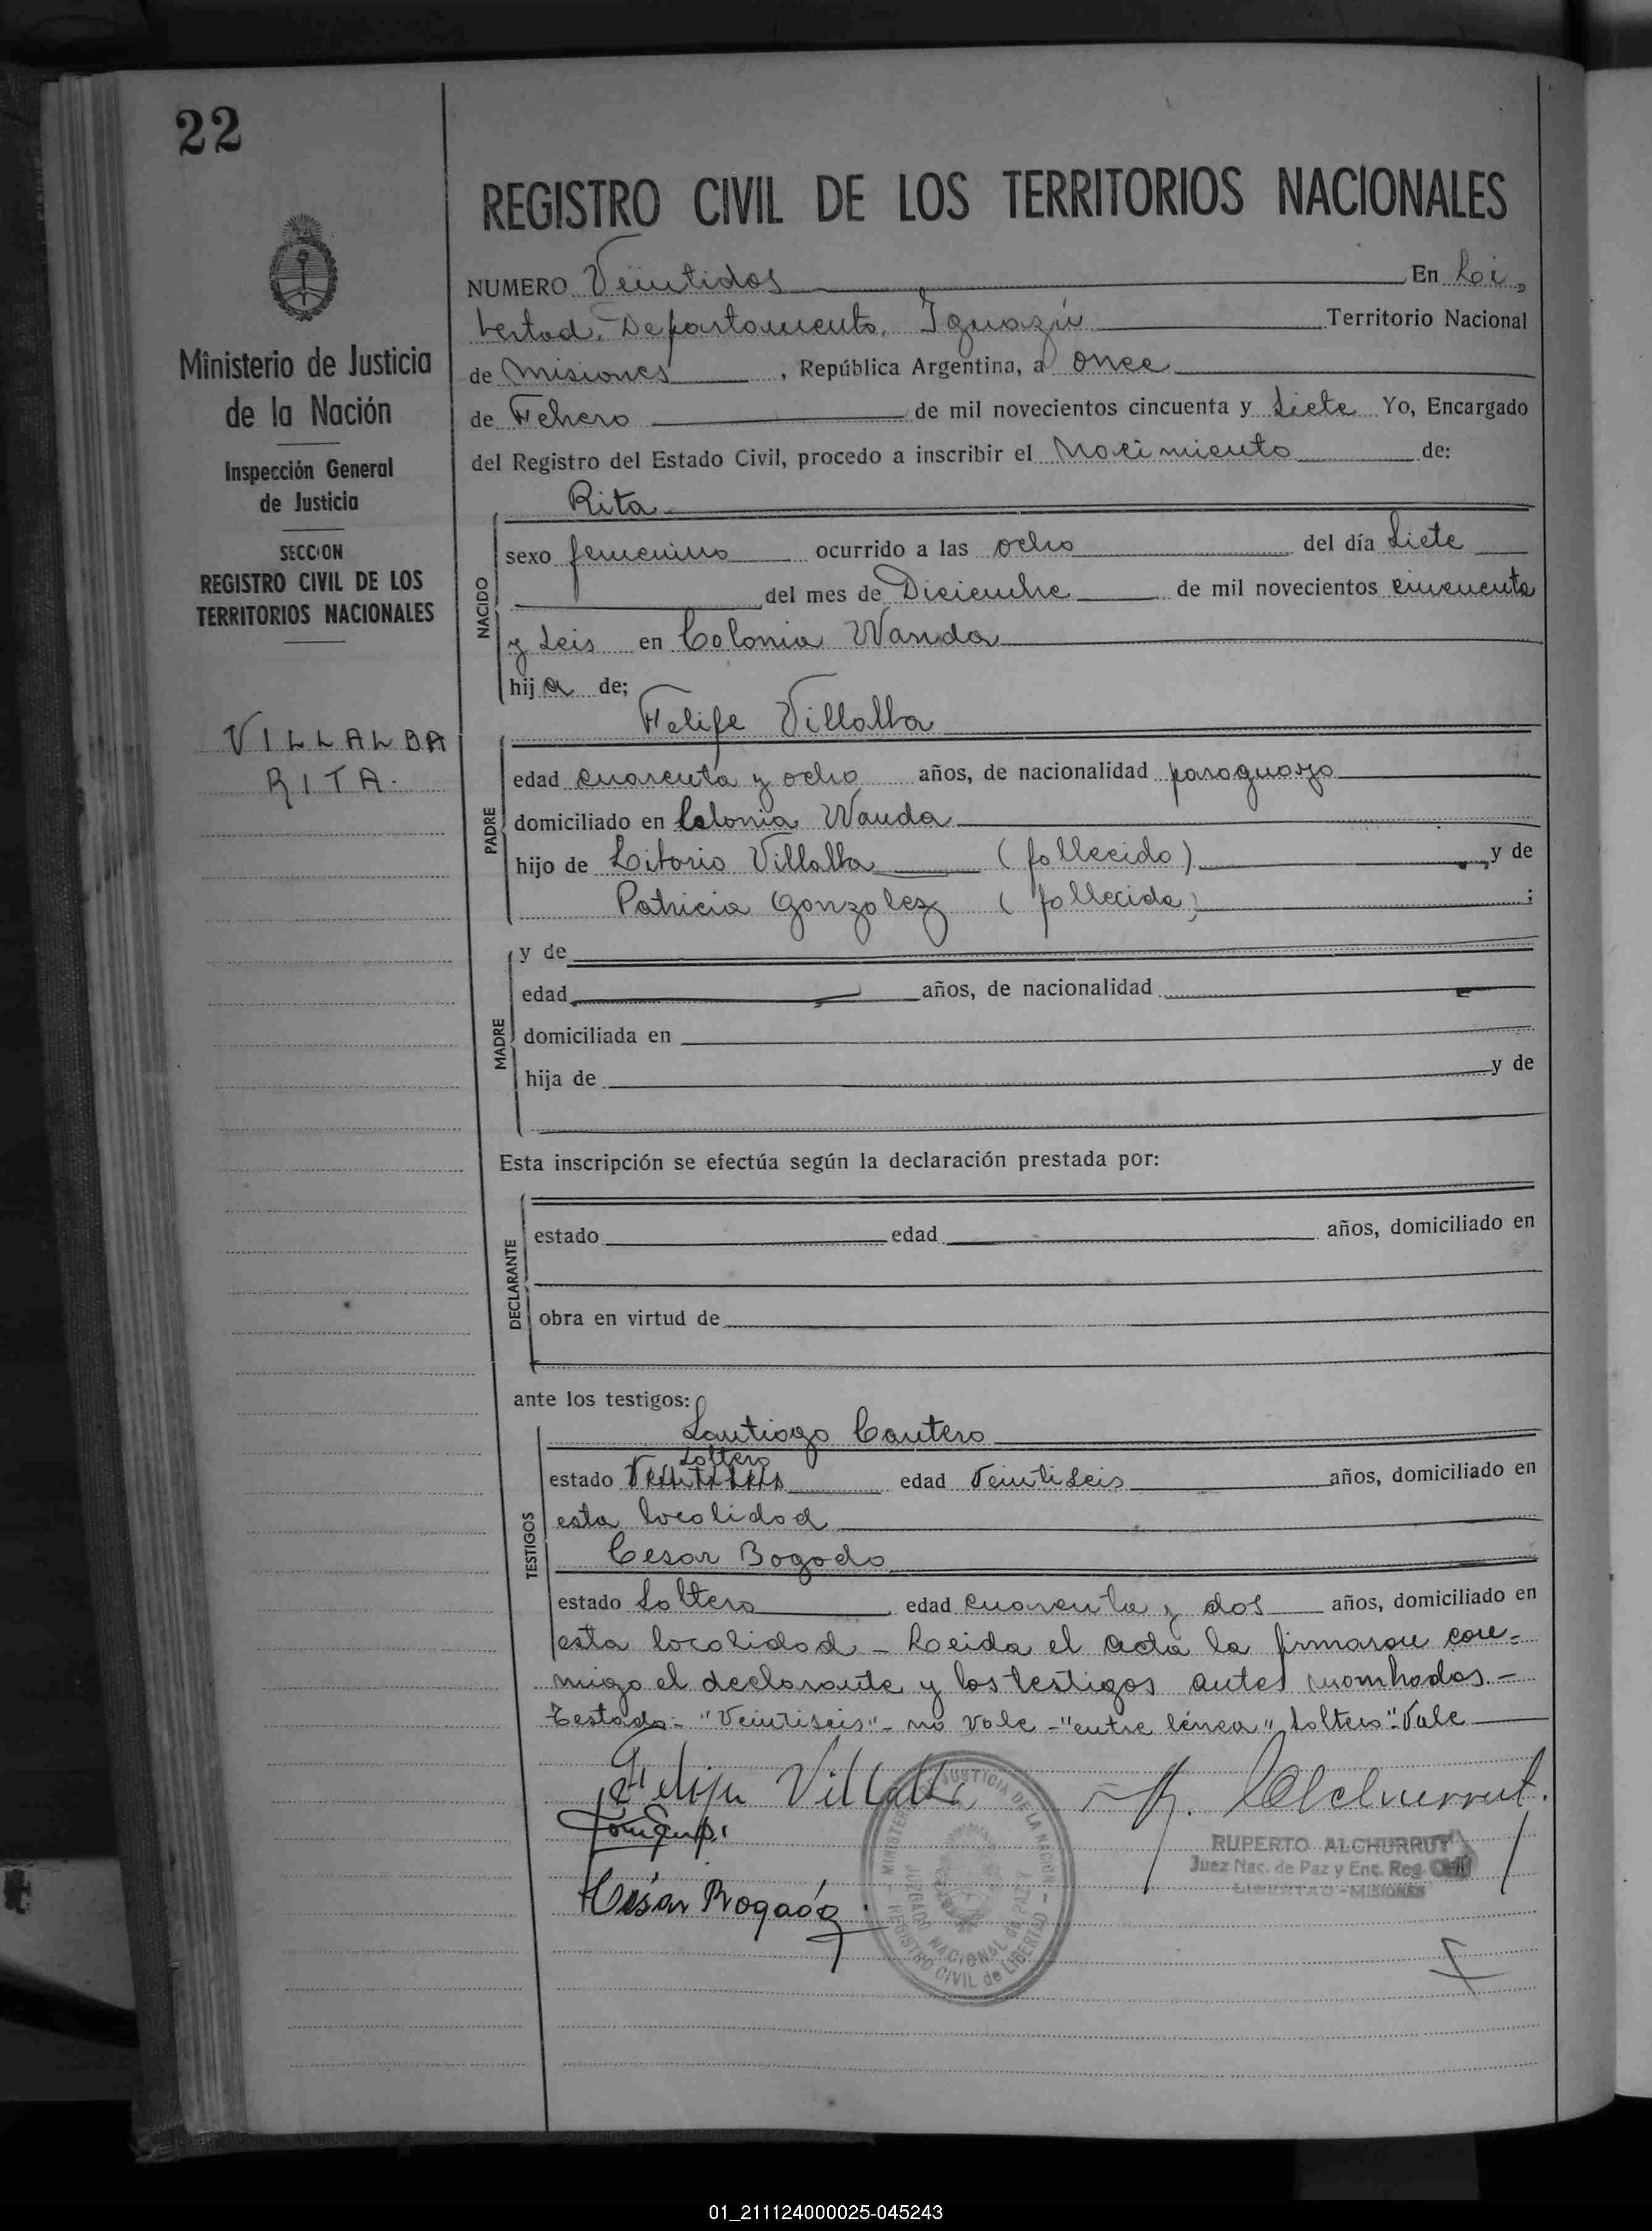 22
REGISTRO CIVIL DE LOS TERRITORIOS NACIONALES
Ministerio de Justicia
de la Nación
Inspección General
de Justicia
SECCION
REGISTRO CIVIL DE LOS
TERRITORIOS NACIONALES
VILLALBA
RITA.
NUMERO Veintidos En Li-
bertad, Departamento, Iguazú Territorio Nacional
de Misiones, República Argentina, a once
de Febrero de mil novecientos cincuenta y siete Yo, Encargado
del Registro del Estado Civil, procedo a inscribir el Nacimiento de:
NACIDO
Rita
sexo femenino ocurrido a las ocho del día siete
del mes de Diciembre de mil novecientos cincuenta
y seis en Colonia Wanda
hija de;
PADRE
Felipe Villalba
edad cuarenta y ocho años, de nacionalidad paraguayo
domiciliado en Colonia Wanda
hijo de Villalba (fallecido) y de
Patricia Gonzalez (fallecida) ;
MADRE
y de
edad años, de nacionalidad
domiciliada en
hija de y de
Esta inscripción se efectúa según la declaración prestada por:
DECLARANTE
estado edad años, domiciliado en
obra en virtud de
ante los testigos:
TESTIGOS
Santiago Cantero
soltero
estado Veintiseis edad Veintiseis años, domiciliado en
esta localidad
Cesar Bogado
estado Soltero edad cuarenta y dos años, domiciliado en
esta localidad - Leida el acta la firmaron con-
migo el declarante y los testigos antes nombrados.-
Testado:- "Veintiseis"- no vale -"entre línea" soltero"- Vale
Felipe Villalba
R. Alchurrut.
RUPERTO ALCHURRUT
Juez Nac. de Paz y Enc. Reg. Civil
LIBERTAD - MISIONES
César Bogado
MINISTERIO DE JUSTICIA DE LA NACION
JUZGADO NACIONAL de PAZ Y
REGISTRO CIVIL de LIBERTAD
01_211124000025-045243